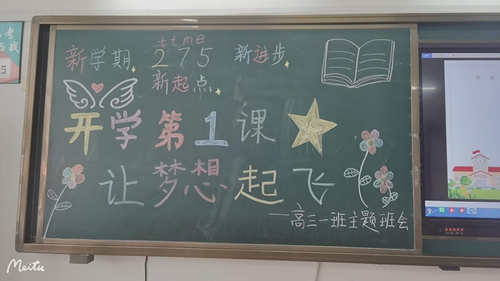 新学期 time 275 新进步
新起点
开学第1课
让梦想起飞
——高三一班主题班会
Meitu